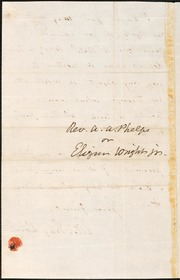 Rev. A. A. Phelps
or
Elizur Wright Jr.